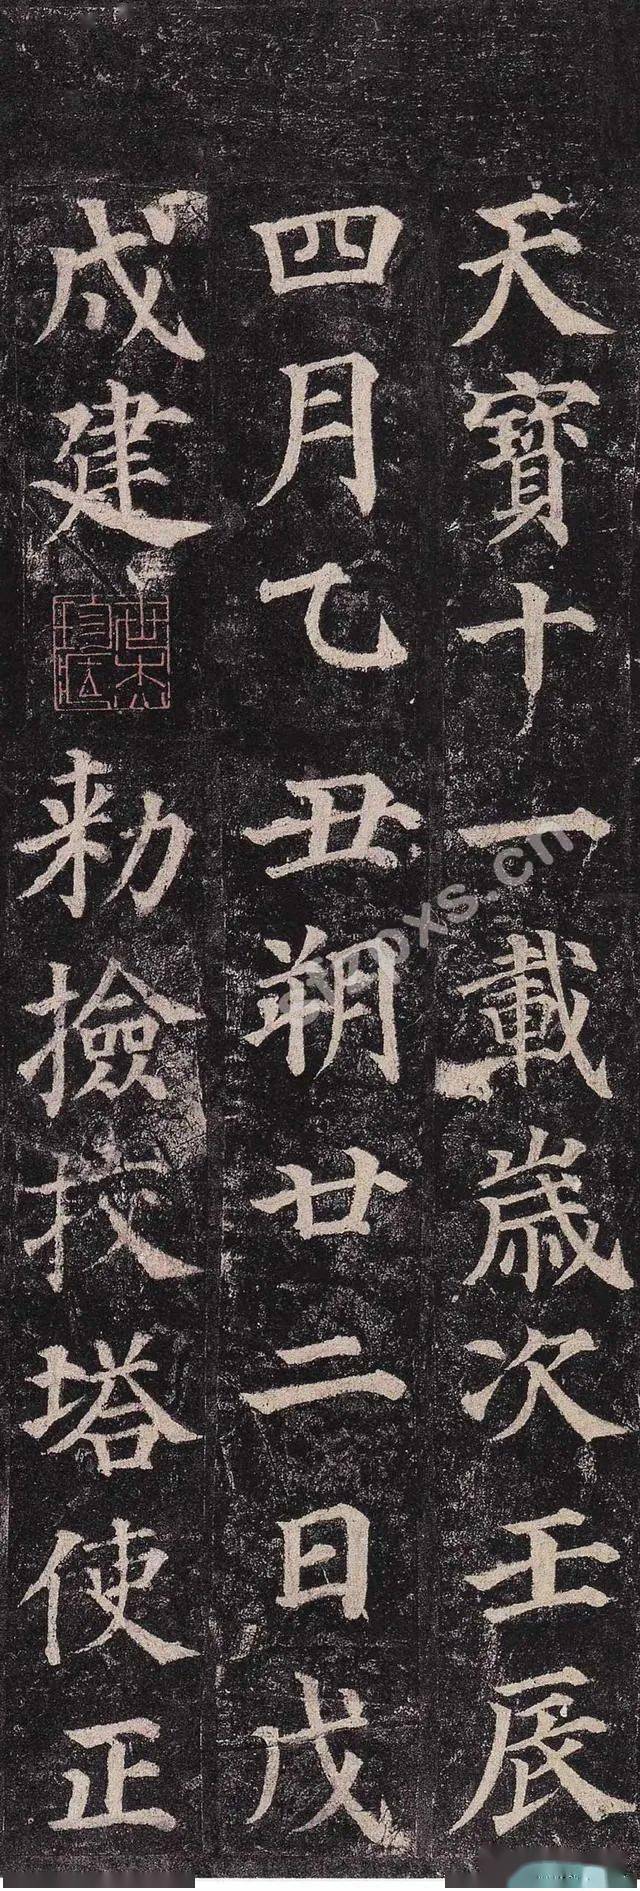 天寶十一載歲次壬辰
四月乙丑朔廿二日戊
戌建
勑撿挍塔使正